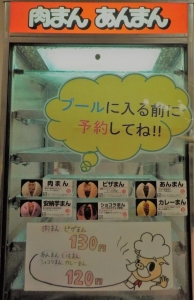 肉まん あんまん
プールに入る前に
予約してね!!
肉まん ピザまん あんまん
安納芋まん ショコラまん カレーまん
肉まん ピザまん
130円
あんまん
ショコラまん カレーまん
120円